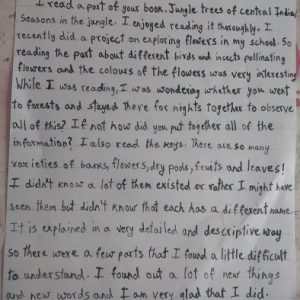 I read a part of your book. Jungle trees of central India,
Seasons in the jungle. I enjoyed reading it thoroughly. I
recently did a project on exploring flowers in my school. So
reading the part about different birds and insects pollinating
flowers and the colours of the flowers was very interesting
While I was reading, I was wondering whether you went
to forests and stayed there for nights together to observe
all of this? If not how did you put together all of the
information? I also read the keys. There are so many
varieties of barks, flowers, dry pods, fruits and leaves!
I didn't know a lot of them existed or rather I might have
seen them but didn't know that each has a different name.
It is explained in a very detailed and descriptive way
so there were a few parts that I found a little difficult
to understand. I found out a lot of new things
and new words and I am very glad that I did.